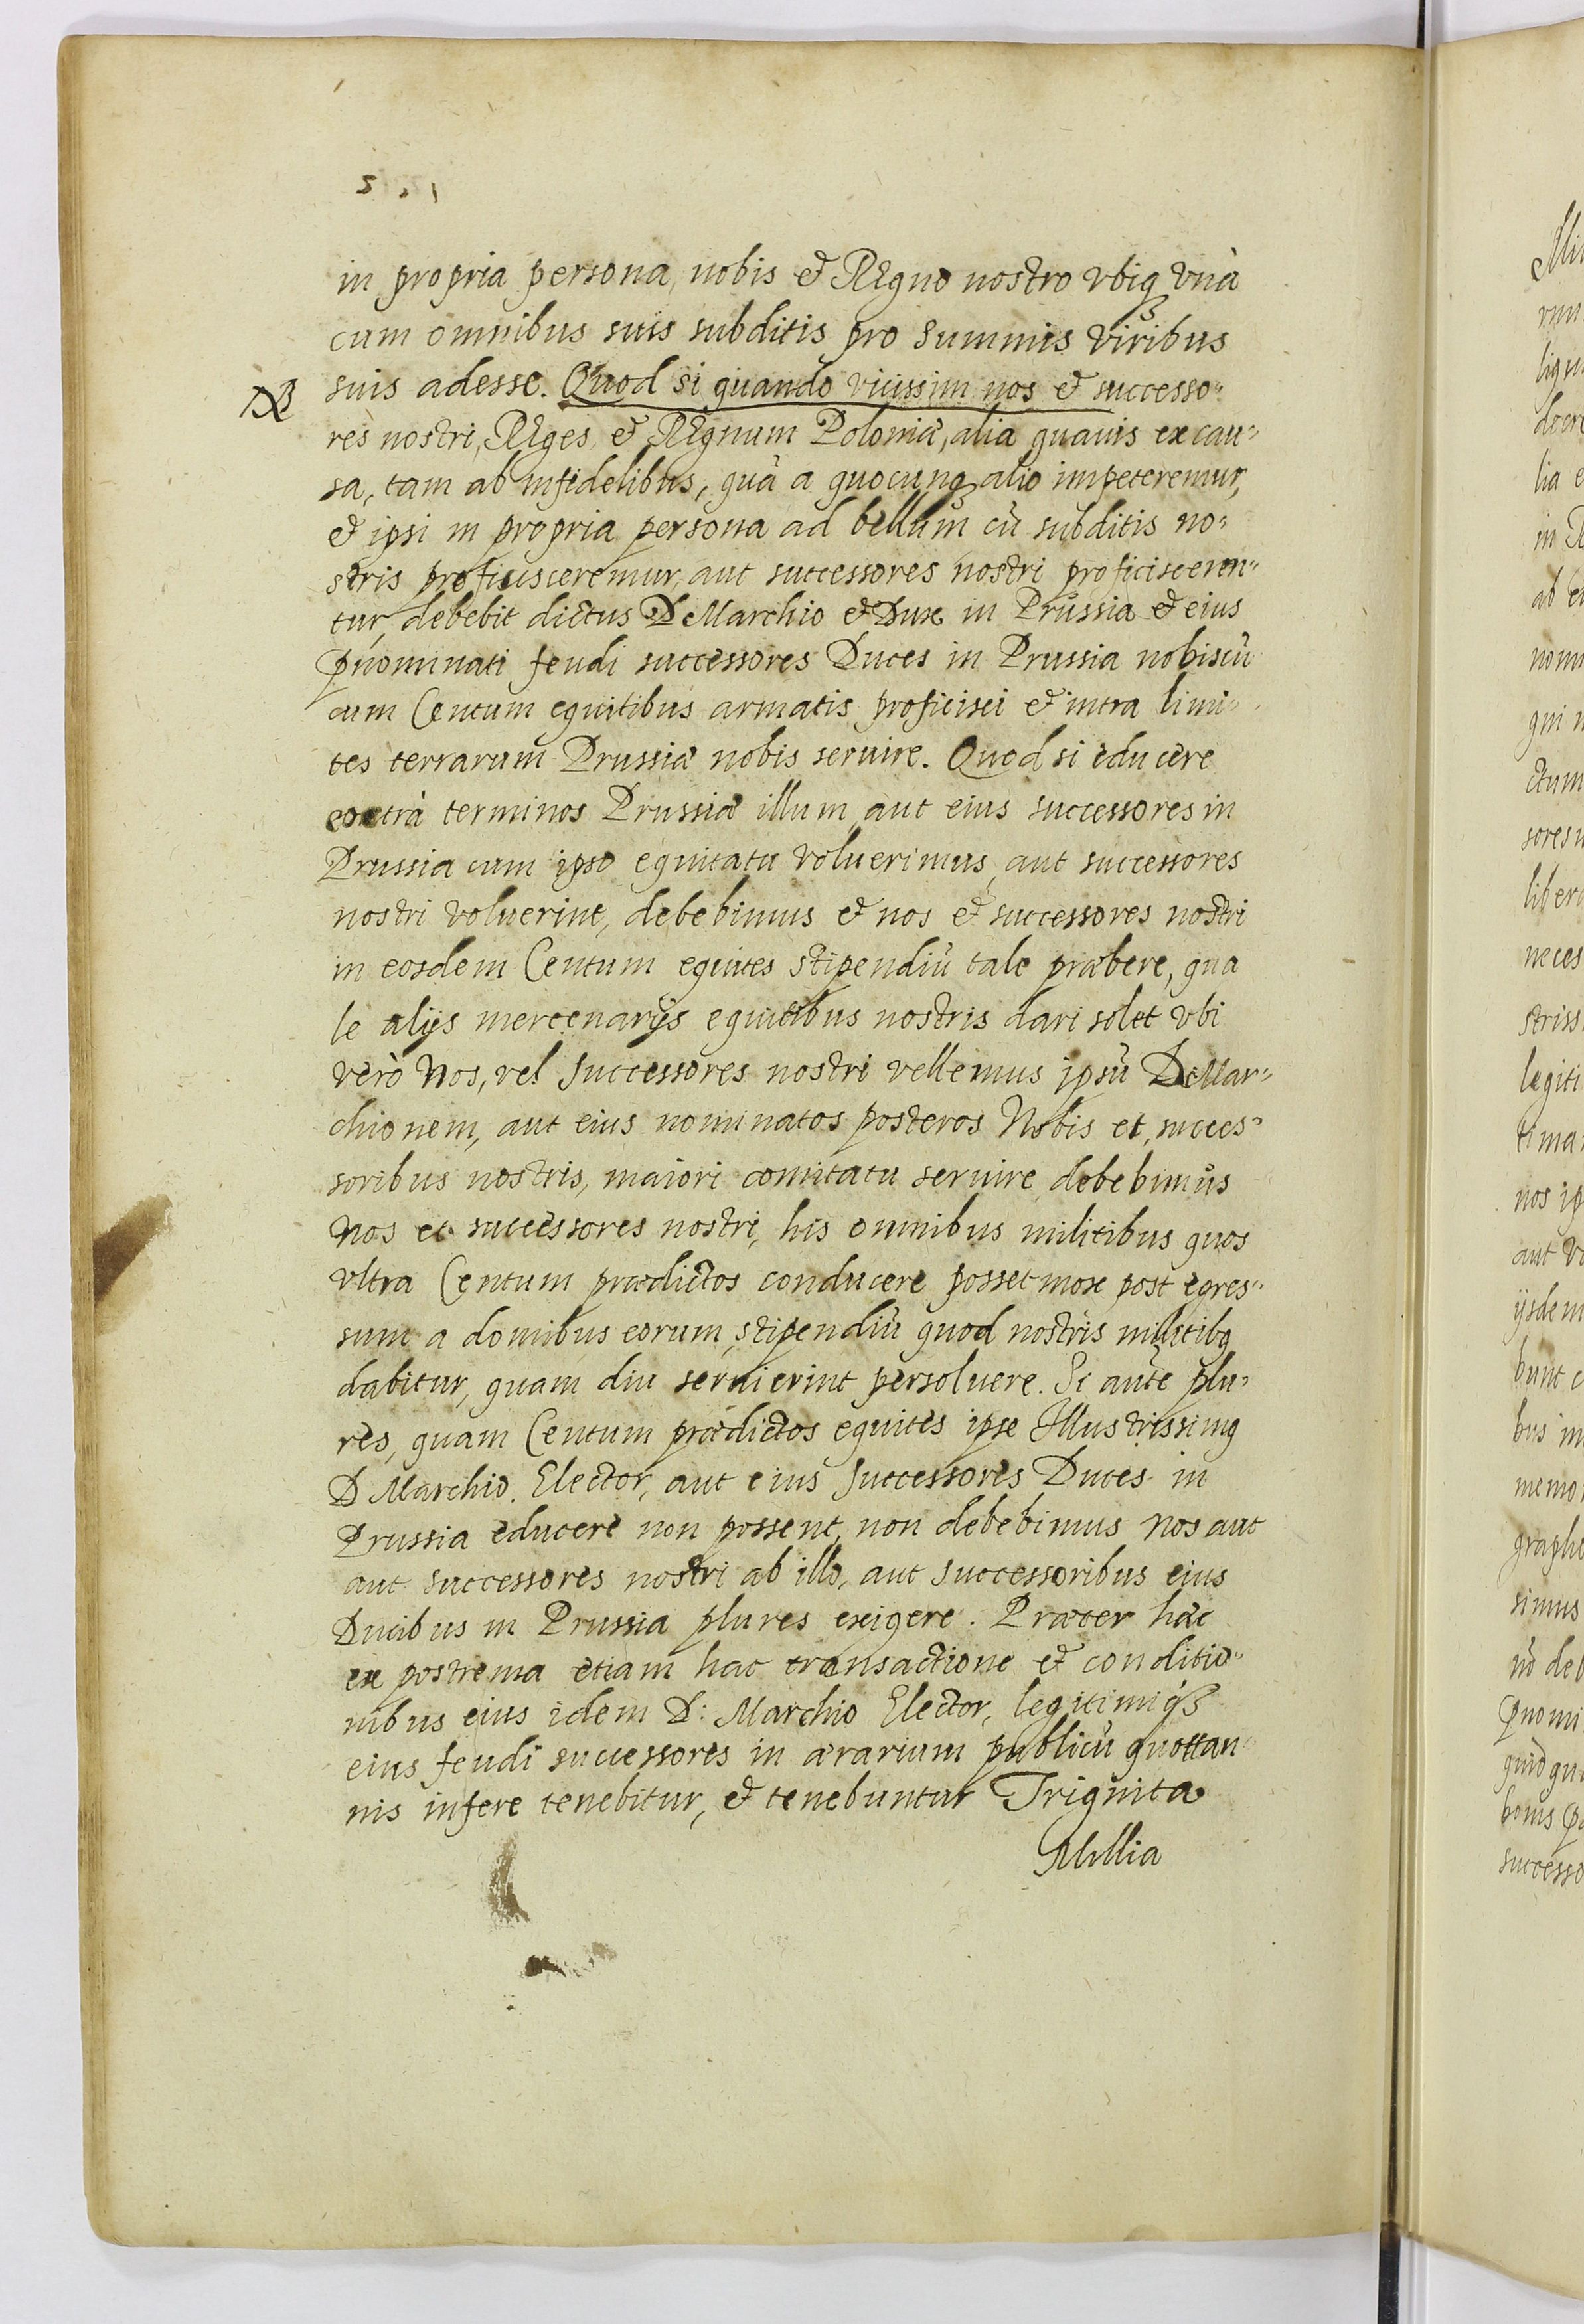 in propria persona, nobis et Regno nostro vbiq3 vnà
cum omnibus suis subditis pro summis viribus
NB suis adesse. Quod si quando vicissim nos et successo-
res nostri, Reges et Regnum Poloniæ, alia quauis ex cau-
sa, tam ab infidelibus, quā a quocunq3 alio impeteremur,
et ipsi in propria persona ad bellum cū subditis no-
stris proficisceremur, aut successores nostri proficisceren-
tur, debebit dictus D Marchio et Dux in Prussia et eius
p̄nominati feudi successores Duces in Prussia nobiscū
cum Centum equitibus armatis proficisci et intra limi-
tes terrarum Prussiæ nobis seruire. Quod si educere
extrà terminos Prussiæ illum, aut eius successores in
Prussia cum ipso equitatu voluerimus, aut successores
nostri voluerint, debebimus et nos et successores nostri
in eosdem Centum equites stipendiū tale præbere, qua
le alijs mercenarijs equitibus nostris dari solet vbi
verò Nos, vel successores nostri vellemus ipsū D. Mar-
chionem, aut eius nominatos posteros Nobis et, succes-
soribus nostris, maiori comitatu seruire debebimus
Nos et successores nostri, his omnibus militibus quos
vltra Centum prædictos conducere posset mox post egres-
sum a domibus eorum, stipendiū quod nostris militibq
dabitur, quam diu seruierint persoluere. Si autē plu-
res, quam Centum prædictos equites ipse Illustrissimq
D Marchio. Elector, aut eius successores Duces in
Prussia educere non possent, non debebimus Nos aut
aut successores nostri ab illo, aut successoribus eius
Ducibus in Prussia plures exigere. Præter hæc
ex postrema etiam hac transactione et conditio-
nibus eius idem D: Marchio Elector, legitimiq3
eius feudi successores in ærarium publicū quottan-
nis infere tenebitur, et tenebuntur Triginta
Millia